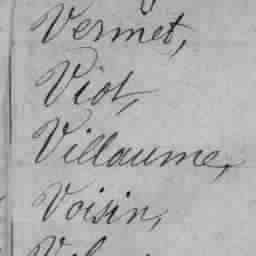 Vermet,
Viot,
Villaume,
Voisin,